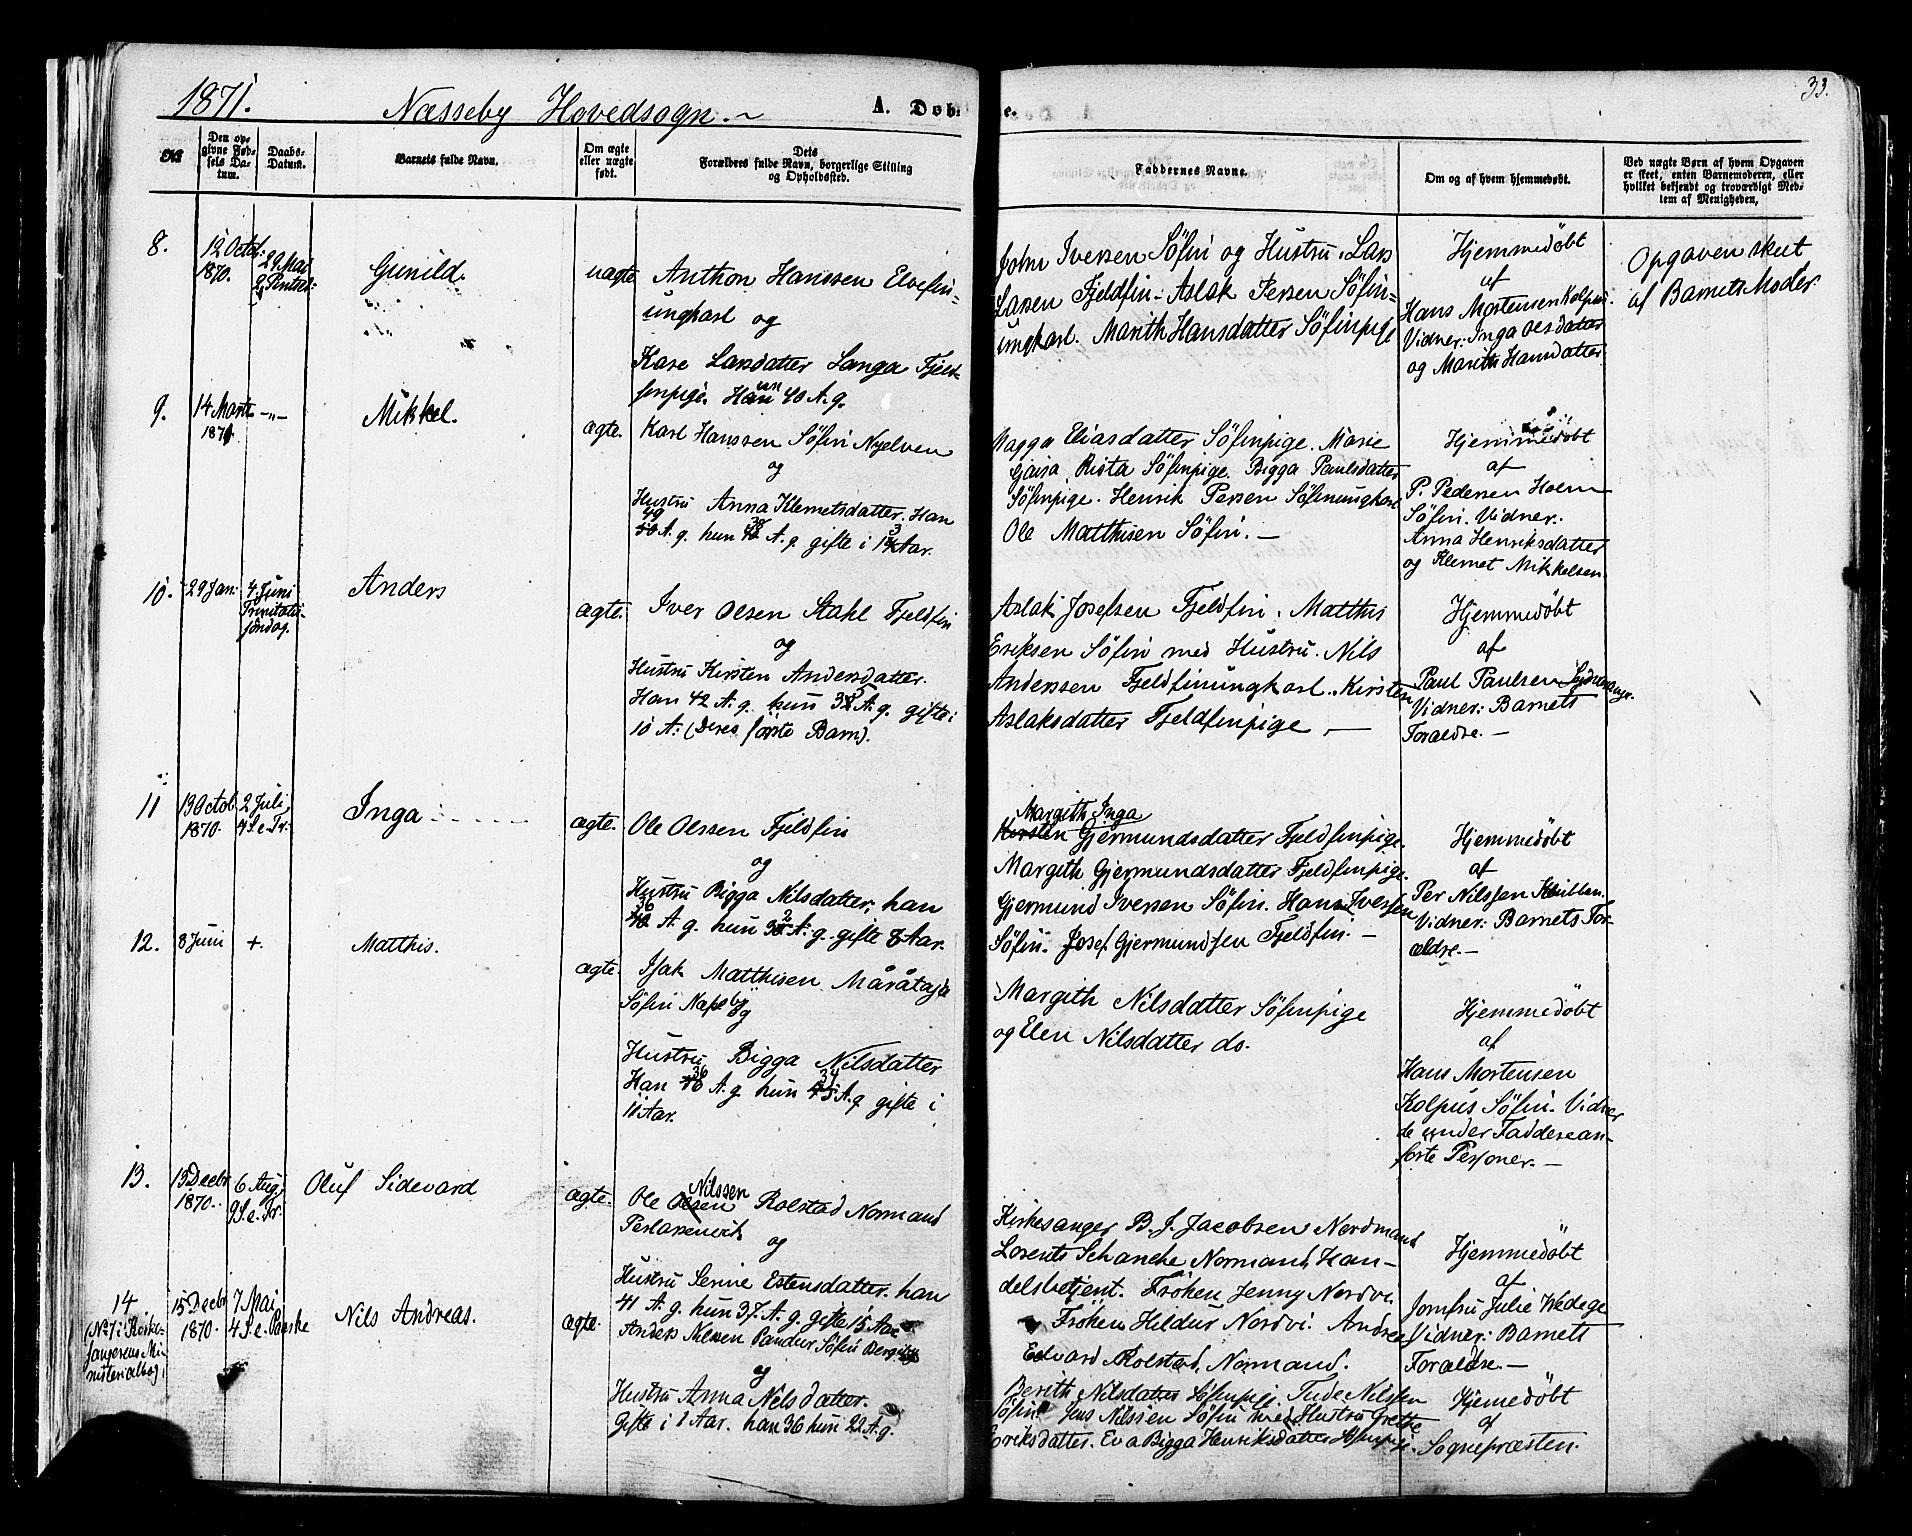 1871.
Næsseby Hovedsogn.
A. Døb
e.
33.
No
Den op-
givne Fød-
sels Da-
tum.
Daabs-
Datum.
Barnets fulde Navn.
Om ægte
eller uægte
født.
Dets
Forældres fulde Navn, borgerlige Stilling
og Opholdssted.
Faddernes Navne.
Om og af hvem hjemmedøbt.
Ved uægte Børn af hvem Opgaven
er skeet, enten Barnemoderen, eller
hvilket bekjendt og troværdigt Med-
lem af Menigheden.
8.
12 Octob:
1870.
29 Mai
2 Pintsed:
Gunild.
uægte
Anthon Hanssen Elvefin-
ungkarl og
Kare Larsdatter Langa Fjeld-
finpige. Hun 40 A. g.
John Iversen Söfin og Hustru. Lars
Larsen Fjeldfin. Aslak Persen Söfin-
ungkarl. Marith Hansdatter Söfinpige
Hjemmedöbt
af
Hans Mortensen Kolpus.
Vidner: Inga Olsdatter
og Marith Hansdatter.
Opgaven skeet
af Barnets Moder.
9.
14 Marts
1871.
-"-
Mikkel.
ægte.
Karl Hanssen Söfin Nyelven
og
Hustru Anna Klemetsdatter. Han
49
50 A. g. hun 38 A. g. gifte i 13 Aar.
Magga Eliasdatter Söfinpige. Marie
Gaisa Rista Söfinpige. Bigga Paulsdatter
Söfinpige. Henrik Persen Söfinungkarl
Ole Matthisen Söfin. —
Hjemmedöbt
af
P. Pedersen Holm
Söfin. Vidner.
Anna Henriksdatter
og Klemet Mikkelsen
10.
29 Jan:
4 Juni
Trinitatis
söndag.
Anders
ægte.
Iver Olsen Stahl Fjeldfin
og
Hustru Kirsten Andersdatter.
Han 42 A. g. hun 35 A. g. gifte i
10 A: (Deres förste Barn).
Aslak Josefsen Fjeldfin. Matthis
Eriksen Söfin med Hustru. Nils
Anderssen Fjeldfinungkarl. Kirsten
Aslaksdatter Fjeldfinpige —
Hjemmedöbt
af
Paul Paulsen
Vidner: Barnets
Forældre. —
11
13 Octob.
1870.
2 Juli,
4 S. e. Tr.
Inga
ægte.
Ole Olssen Fjeldfin
og
Hustru Bigga Nilsdatter, han
36
40 A. g. hun 32 A. g. gifte 8 Aar.
Margith Inga
Kirsten Gjermundsdatter Fjeldfinpige.
Margith Gjermundsdatter Fjeldfinpige.
Gjermund Iversen Söfin. Hans Iversen
Söfin. Josef Gjermundsen Fjeldfin. —
Hjemmedöbt
af
Per Nilssen
Vidner: Barnets For-
ældre. —
12.
8 Juni
+.
Matthis.
ægte.
Isak Matthisen Mååtaja
Söfin Næsseby
og
Hustru Bigga Nilsdatter
Han 36 A. g. hun 34 A. g. gifte i
11 Aar.
Margith Nilsdatter Söfinpige
og Elen Nilsdatter do.
Hjemmedöbt
af
Hans Mortensen
Kolpus Söfin. Vidner
de under Fadderean-
förte Personer. —
13.
13 Decbr
1870.
6 Aug.
9 S. e. Tr.
Oluf Sidevard
ægte.
Nilssen
Ole Olsen Rolstad Normand
og
Hustru Serine Estensdatter. han
41 A. g. hun 37. A. g. gifte i 15 Aar
Kirkesanger B. J. Jacobsen Nordmand
Lorents Schanche Normand Han-
delsbetjent. Fröken Jenny Nordvi.
Fröken Hildur Nordvi. Andrea
Edvard Rolstad, Normand.
Hjemmedöbt
af
Jomfru Julie Wedege
Vidner: Barnets
Forældre. —
14
(No 1 i Kirke-
sangerens Mi-
nisterialbog)
15 Decbr
1870.
7 Mai
4 S. e. Paaske
Nils Andreas.
ægte.
Anders Nilsen Pandur Söfin Bergeby
og
Hustru Anna Nilsdatter.
Gifte i 1 Aar. han 36 hun 22 A. g.
Berith Nilsdatter Söfinpige. Tude Nilssen
Söfin. Jens Nilssen Söfin med Hustru Grethe
Eriksdatter. Eva Bigga Henriksdatter Söfinpige.
Hjemedöbt
af
Sognepræsten.